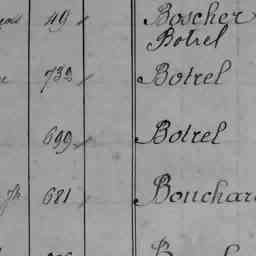 49 Boscher
Botrel
732 Botrel
699 Botrel
681 Bouchar